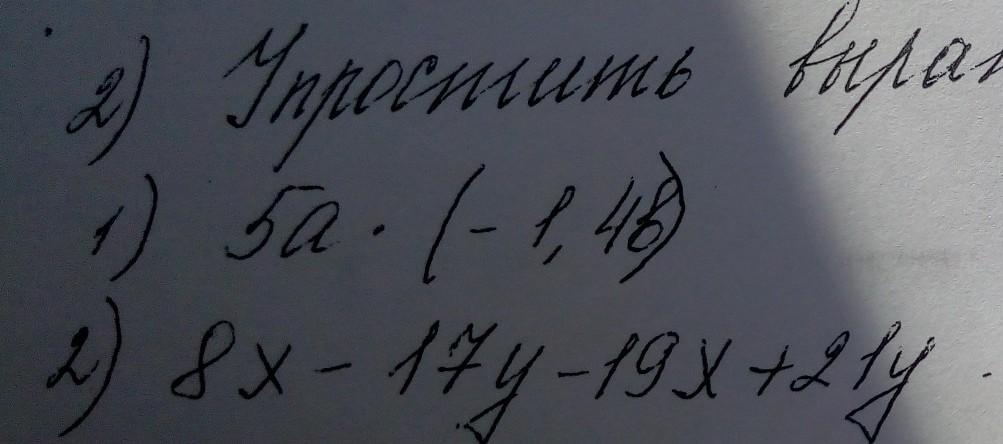 2) Упростить выраж
1) 5a · (-1,4b)
2) 8x - 17y - 19x + 21y